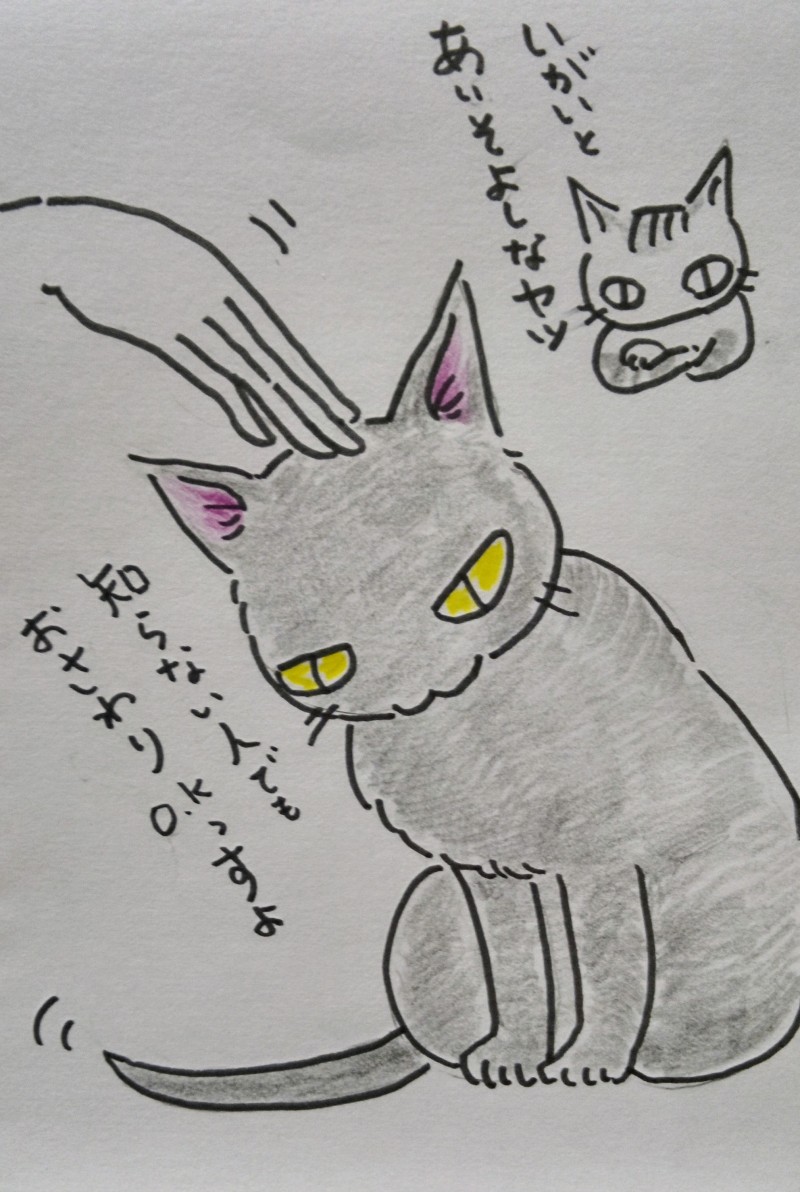 いがいと
あいそよしなヤツ
知らない人でも
おさわり
O.Kっすよ